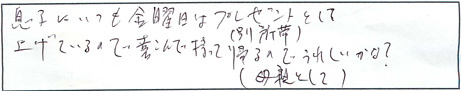 息子にいつも金曜日はプレゼントとして
(別所帯)
上げているので喜んで持って帰るのでうれしいかな?
(母親として)